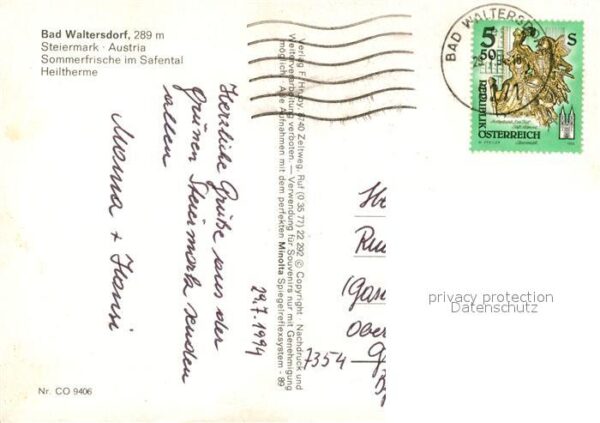 Bad Waltersdorf, 289 m
Steiermark · Austria
Sommerfrische im Safental
Heiltherme
Herrliche Grüße aus der
grünen Steiermark senden
allen
Mama + Hansi
29.7.1994
Verlag F. Hruby, 8740 Zeltweg, Ruf (0 35 77) 22 292 © Copyright · Nachdruck und
Weiterverarbeitung verboten. — Verwendung für Souvenirs nur mit Genehmigung
möglich. Alle Aufnahmen mit dem perfekten Minolta Spiegelreflexsystem - 89
BAD WALTERSDO
5 50 S
REPUBLIK
ÖSTERREICH
Ober
7354
privacy protection
Datenschutz
Nr. CO 9406